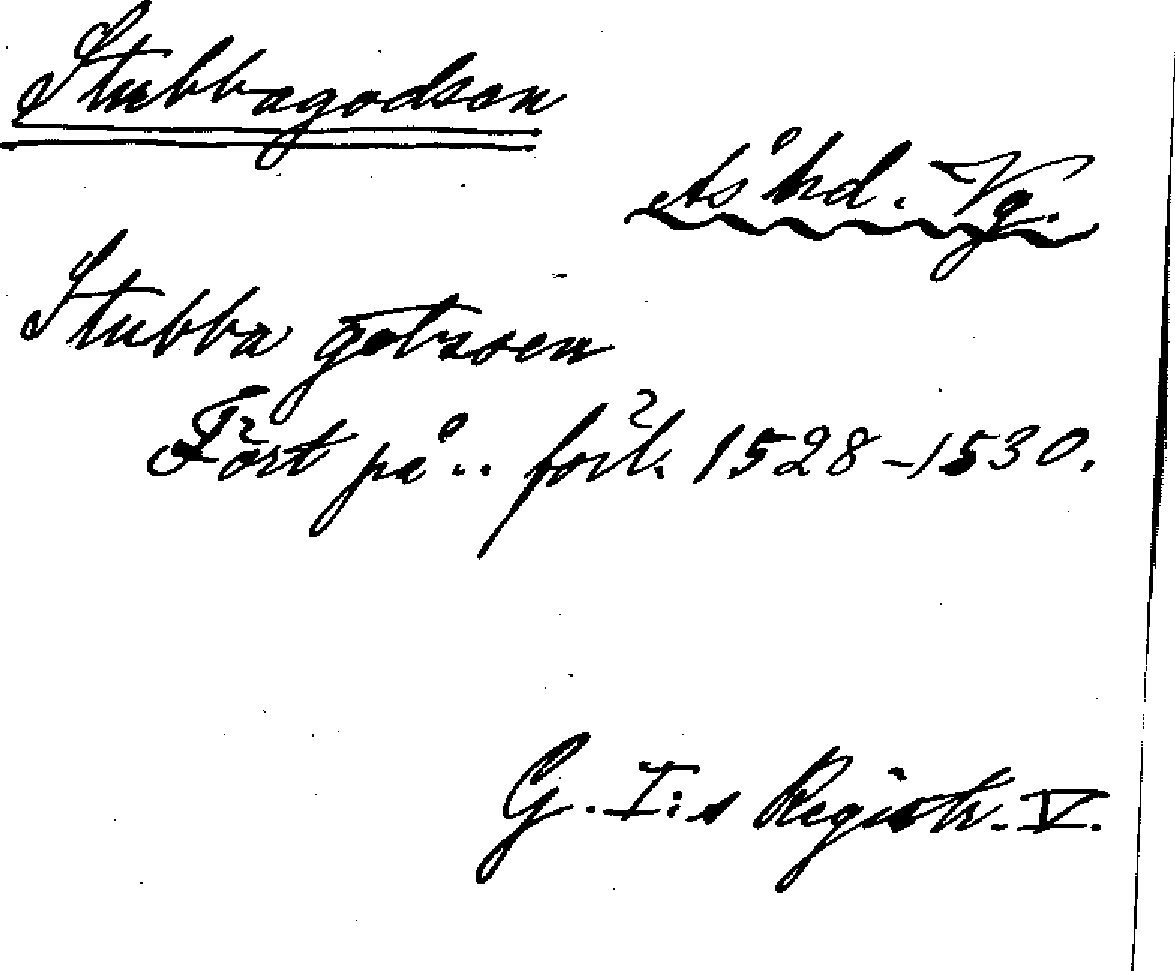 Stubbagodsen
Ås hd. Vg.
Stubba gotzsoen
Fört på .. förl. 1528-1530.
G. I:s Registr. V.